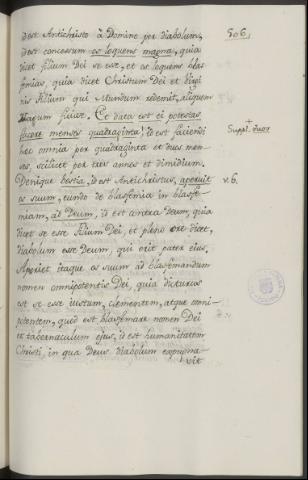 id est Antichristo à Domino per diabolum, 506.
id est concessum os loquens magna, quia
dicet filium Dei se esse, et os loquens blas
femias, quia dicet Christum Dei et Virgi
nis Filium qui Mundum redemit, aliquem
Magum fuisse. Et data est ei potestas
facere menses quadraginta; id est faciendi Suppl. + duos
hec omnia per quadraginta et duos men-
ses, scilicet per tres annos et dimidium.
Denique bestia, id est Antichristus, aperuit v. 6.
os suum, eundo de blasfemia in blasfe-
miam, ad Deum, id est contra Deum, quia
dicet se esse Filium Dei, et pleno ore dicet,
diabolum esse Deum, qui erit pater ejus.
Aperiet itaque os suum ad blasfemandum
nomen omnipotentis Dei, quia dicturus
est se esse iustum, clementem, atque omni-
potentem, quod est blasfemare nomen Dei
et tabernaculum ejus, id est humanitatem
Christi, in qua Deus diabolum expugna-
vit